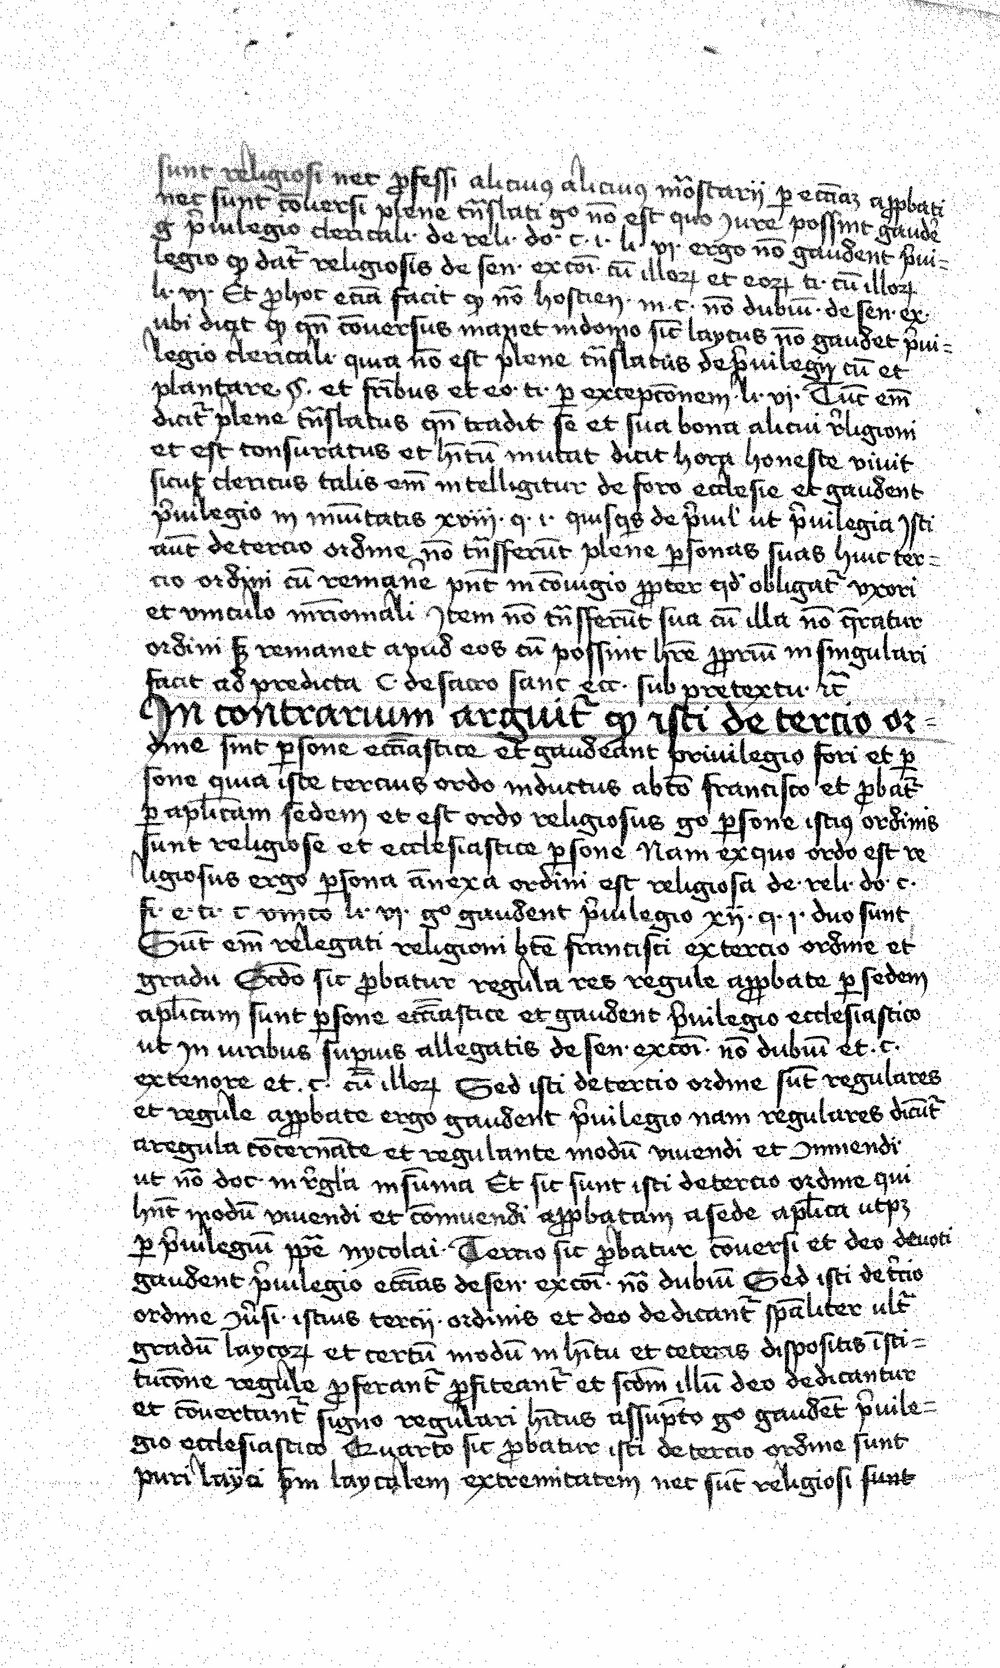 sunt religiosi nec ꝓfessi alicuiꝯ alicuiꝯ mo̅starij ꝑ eccia̅ꝫ aꝓbati
nec sunt co̅versi plene tn̅slati go no̅ est quo Jure possint gaude̅
p̅uilegio clericali· de reli· do· c· i· li· vi· ergo no̅ gaudent p̅ui=
legio ꝙ dat᷑ religiosis de sen· exco̅i· cu̅ illoꝝ et eoꝝ ti· cu̅ illoꝝ
li· vi· Et ꝓhoc ecia̅ facit ꝙ no̅ hostien· in· c· no̅ dubiu̅· de sen· ex·
ubi dicit ꝙ qn̅ co̅versus manet in domo sic̅ laycus no̅ gaudet p̅ui=
legio clericali· quia no̅ est plene tn̅slatus de p̅uilegijs cu̅ et
plantare §. et fr̅ibus et eo· ti· ꝑ excepco̅nem· li· vi· Tu̅c em̅
dicit᷑ plene tn̅slatus qn̅ tradit se et sua bona alicui r̅ligioni
et est tonsuratus et hi̅tu̅ mutat dicit horas honeste vivit
sicut clericus talis em̅ intelligitur de foro ecclesie et gaudent
p̅uilegio in mu̅itatis xviii· q· i· quisq̅s de p̅uil' ut p̅uilegia Jsti
aut de tercio ordine no̅ tn̅sferu̅t plene ꝑsonas suas huic ter=
cio ordini cu̅ remane̅ pn̅t in co̅iugio ꝓpter qd̅ obligat᷑ vxori
et vinculo mr̅iomali Jtem no̅ tn̅sferu̅t sua cu̅ illa no̅ q̅ratur
ordini sꝫ remanet apud eos cu̅ possint hr̅e ꝓpriu̅ in singulari
facit ad predicta C· de sacro sanc ecc· sub pretextu· ꝛc̅
In contrarium arguit᷑ ꝙ isti de tercio or=
dine sint ꝑsone ecci̅astice et gaudeant privilegio fori et ꝑ
sone quia iste tercius ordo inductus a bto̅ francisco et ꝓbat᷑
ꝑ apl̅icam sedem et est ordo religiosus go ꝑsone istiꝯ ordinis
sunt religiose et ecclesiastice ꝑsone Nam ex quo ordo est re
ligiosus ergo ꝑsona a̅nexa ordini est religiosa de· reli· do· c·
fi· e· ti· c vnico li· vi· go gaudent p̅uilegio xij· q· i· duo sunt
Su̅t em̅ relegati religioni bt̅e francisci ex tercio ordine et
gradu Scd̅o sic ꝓbatur regula res regule aꝓbate ꝑ sedem
apl̅icam sunt ꝑsone ecci̅astice et gaudent p̅uilegio ecclesiastico
ut in iuribus suꝑius allegatis de sen· exco̅i· no̅ dubiu̅ et· c·
ex tenore et· c· cu̅ illoꝝ Sed isti de tercio ordine su̅t regulares
et regule aꝓbate ergo gaudent p̅uilegio nam regulares dicu̅t᷑
a regula co̅cerna̅te et regulante modu̅ vivendi et Jnuendi
ut no̅ doc· in r̅gla in su̅ma Et sic sunt isti de tercio ordine qui
hn̅t modu̅ vivendi et co̅nuendi aꝓbatam a sede apl̅ica utpꝫ
ꝑ p̅uilegiu̅ pp̅e nycolai· Tercio sic ꝓbatur co̅versi et deo devoti
gaudent p̅uilegio ecci̅as de sen· exco̅i· no̅ dubiu̅ Sed isti de t̅cio
ordine Ju̅si· istius tercij· ordinis et deo dedicant᷑ spa̅liter ult᷑
gradu̅ laycoꝝ et certu̅ modu̅ in hi̅tu et ceteris dispositis i̅sti=
tuco̅ne regule ꝓferant᷑ ꝓfiteant᷑ et scd̅m illu̅ deo dedicantur
et co̅vertant᷑ signo regulari hi̅tus assu̅pto go gaude̅t p̅uile=
gio ecclesiastico Quarto sic ꝓbatur isti de tercio ordine sunt
puri layci scd̅m laycalem extremitatem nec su̅t religiosi sunt